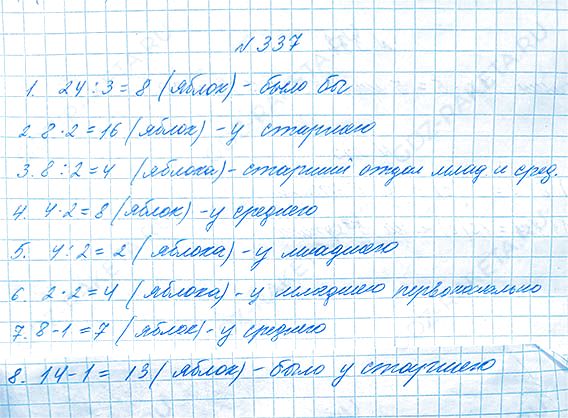 №337
1. 24 : 3 = 8 (яблок) - было бы
2. 8 · 2 = 16 (яблок) - у старшего
3. 8 : 2 = 4 (яблока) - старший отдал млад и сред.
4. 4 · 2 = 8 (яблок) - у среднего
5. 4 : 2 = 2 (яблока) - у младшего
6. 2 · 2 = 4 (яблока) - у младшего первоначально
7. 8 - 1 = 7 (яблок) - у среднего
8. 14 - 1 = 13 (яблок) - было у старшего